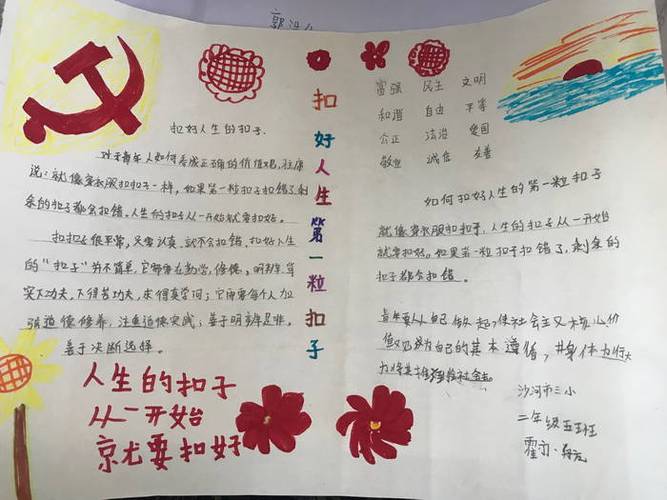 郭
扣好人生的扣子.
对于青年人如何养成正确的价值观，
说：就像穿衣服扣扣子一样，如果第一粒扣子扣错了剩
余的扣子都会扣错。人生的扣子从一开始就要扣好。
扣扣子很平常，只要认真，就不会扣错，扣好人生
的“扣子”并不简单，它需要在勤学，修德，明辨，笃
实下功夫，下得苦功夫，求得真学问；它需要每个人加
强道德修养，注重道德实践；善于明辨是非，
善于决断选择。
人生的扣子
从一开始
京尤要扣好
扣好人生第一粒扣子
富强 民主 文明
和谐 自由 平等
公正 法治 爱国
敬业 诚信 友善
如何扣好人生的第一粒扣子
就像穿衣服扣扣子，人生的扣子从一开始
就要扣好。如果第一粒扣子扣错了，剩余的
扣子都会扣错。
青年要从自己做起，使社会主义核心价
值观成为自己的基本遵循，并身体力行大
力将其推
沙河市三小
二年级五班
霍